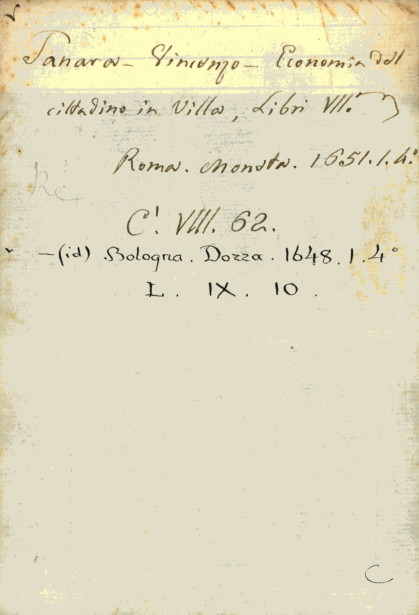 Tanara - Vincenzo - Economia del
cittadino in Villa, Libri VII.
Roma. Moneta. 1651. 1. 4.º
C! VIII. 62.
- (id) Bologna. Dozza. 1648. 1. 4º
L. IX. 10.
C